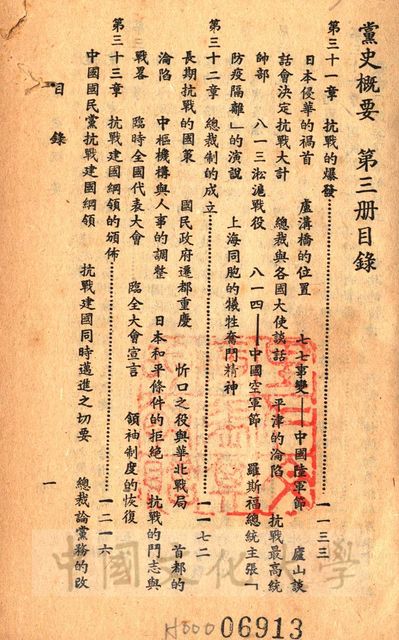 黨史概要　第三册目錄
第三十一章　抗戰的爆發……一一三三
日本侵華的禍首　盧溝橋的位置　七七事變——中國陸軍節　廬山談
話會決定抗戰大計　總裁與各國大使談話　平津的淪陷　抗戰最高統
帥部　八一三淞滬戰役　八一四——中國空軍節　羅斯福總統主張「
防疫隔離」的演說　上海同胞的犧牲奮鬥精神
第三十二章　總裁制的成立……一一七二
長期抗戰的國策　國民政府遷都重慶　忻口之役與華北戰局　首都的
淪陷　中樞機構與人事的調整　日本和平條件的拒絕　抗戰的鬥志與
戰畧　臨時全國代表大會　臨全大會宣言　領袖制度的恢復
第三十三章　抗戰建國綱領的頒佈……一二一六
中國國民黨抗戰建國綱領　抗戰建國同時邁進之切要　總裁論黨務的改
目錄　一
中國文化大學
H300 06913